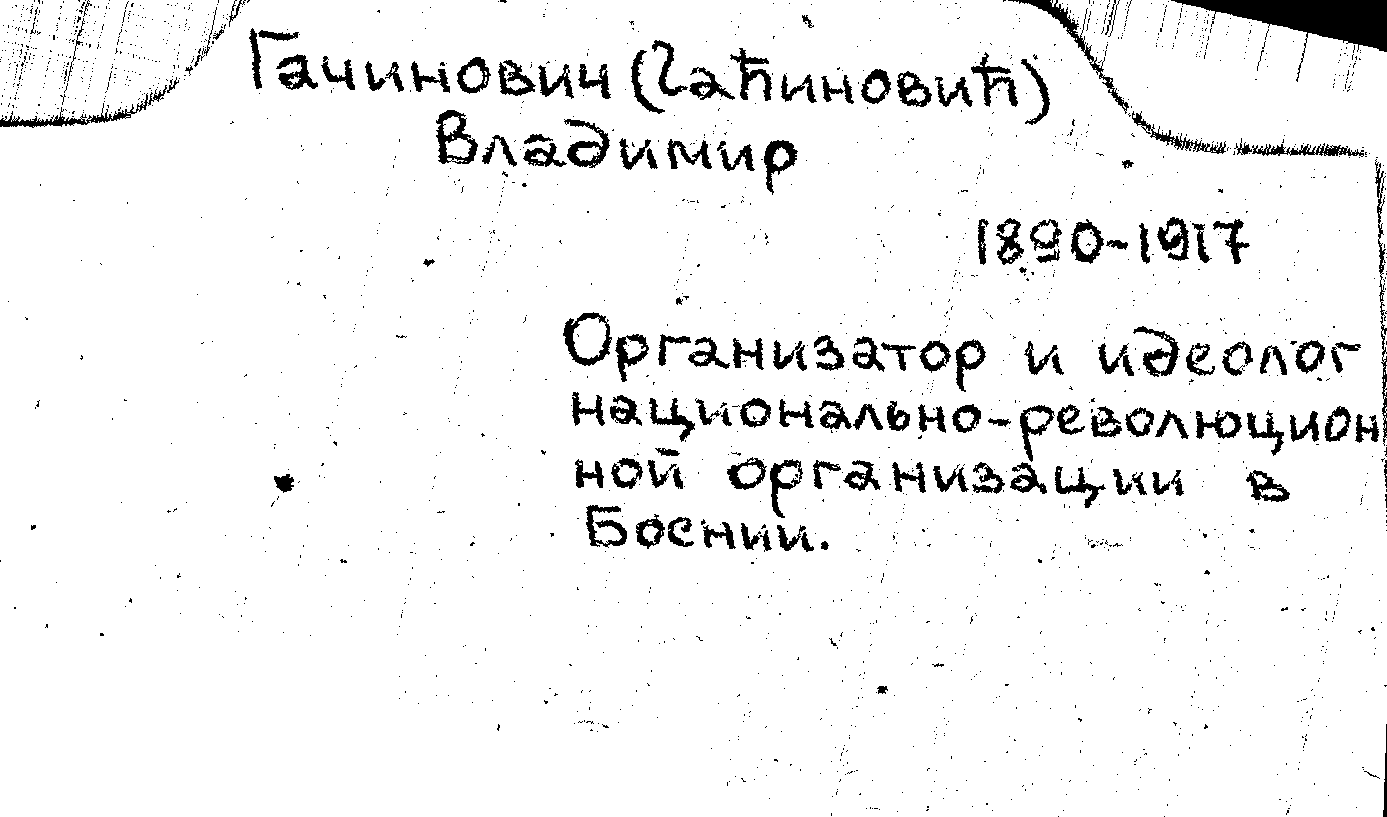 Гачинович (Гаћиновић)
Владимир
1890-1917
Организатор и идеолог
национально-революцион
ной организации в
Боснии.